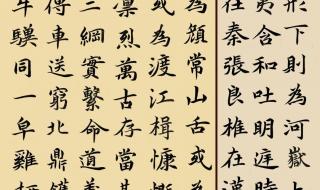 形下則為河嶽上
夷含和吐明庭時
在秦張良椎在漢
為顏常山舌或為
或為渡江楫慷慨
凜烈萬古存當其
三綱實繫命道義
傳車送窮北鼎鑊
牛驥同一皁雞栖